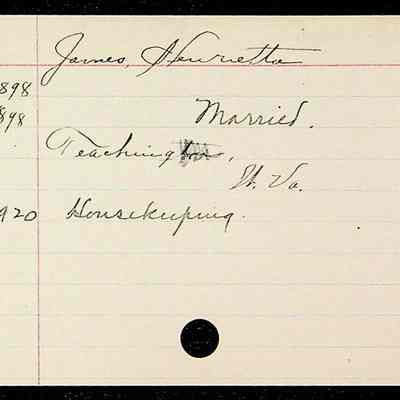 James, Henrietta
898
898 Married.
Teaching,
W. Va.
920 Housekeeping.